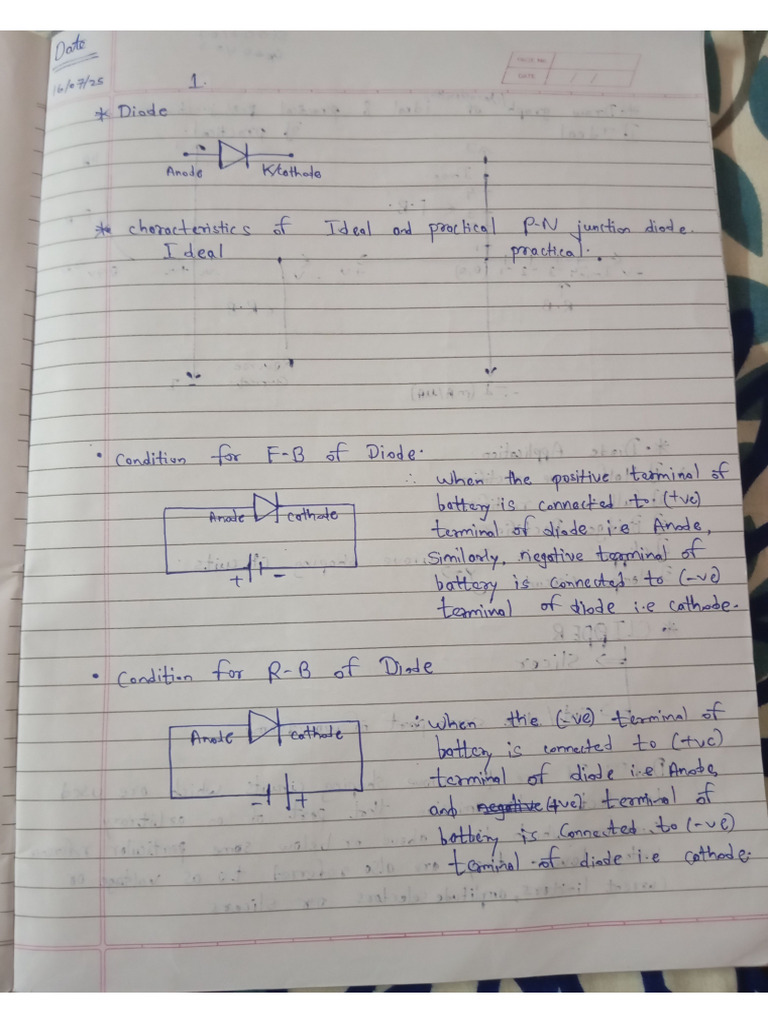 Date
16/07/25
PAGE NO.
DATE / /
1.
* Diode
Anode K/Cathode
* Characteristics of Ideal and practical P-N junction diode.
Ideal practical.
• Condition for F-B of Diode.
∴ When the positive terminal of
battery is connected to (+ve)
terminal of diode i.e Anode,
Similarly, negative terminal of
battery is connected to (-ve)
terminal of diode i.e cathode.
Anode Cathode
+ -
• Condition for R-B of Diode
∴ When the (-ve) terminal of
battery is connected to (+ve)
terminal of diode i.e Anode,
and negative (+ve) terminal of
battery is connected to (-ve)
terminal of diode i.e cathode.
Anode Cathode
- +